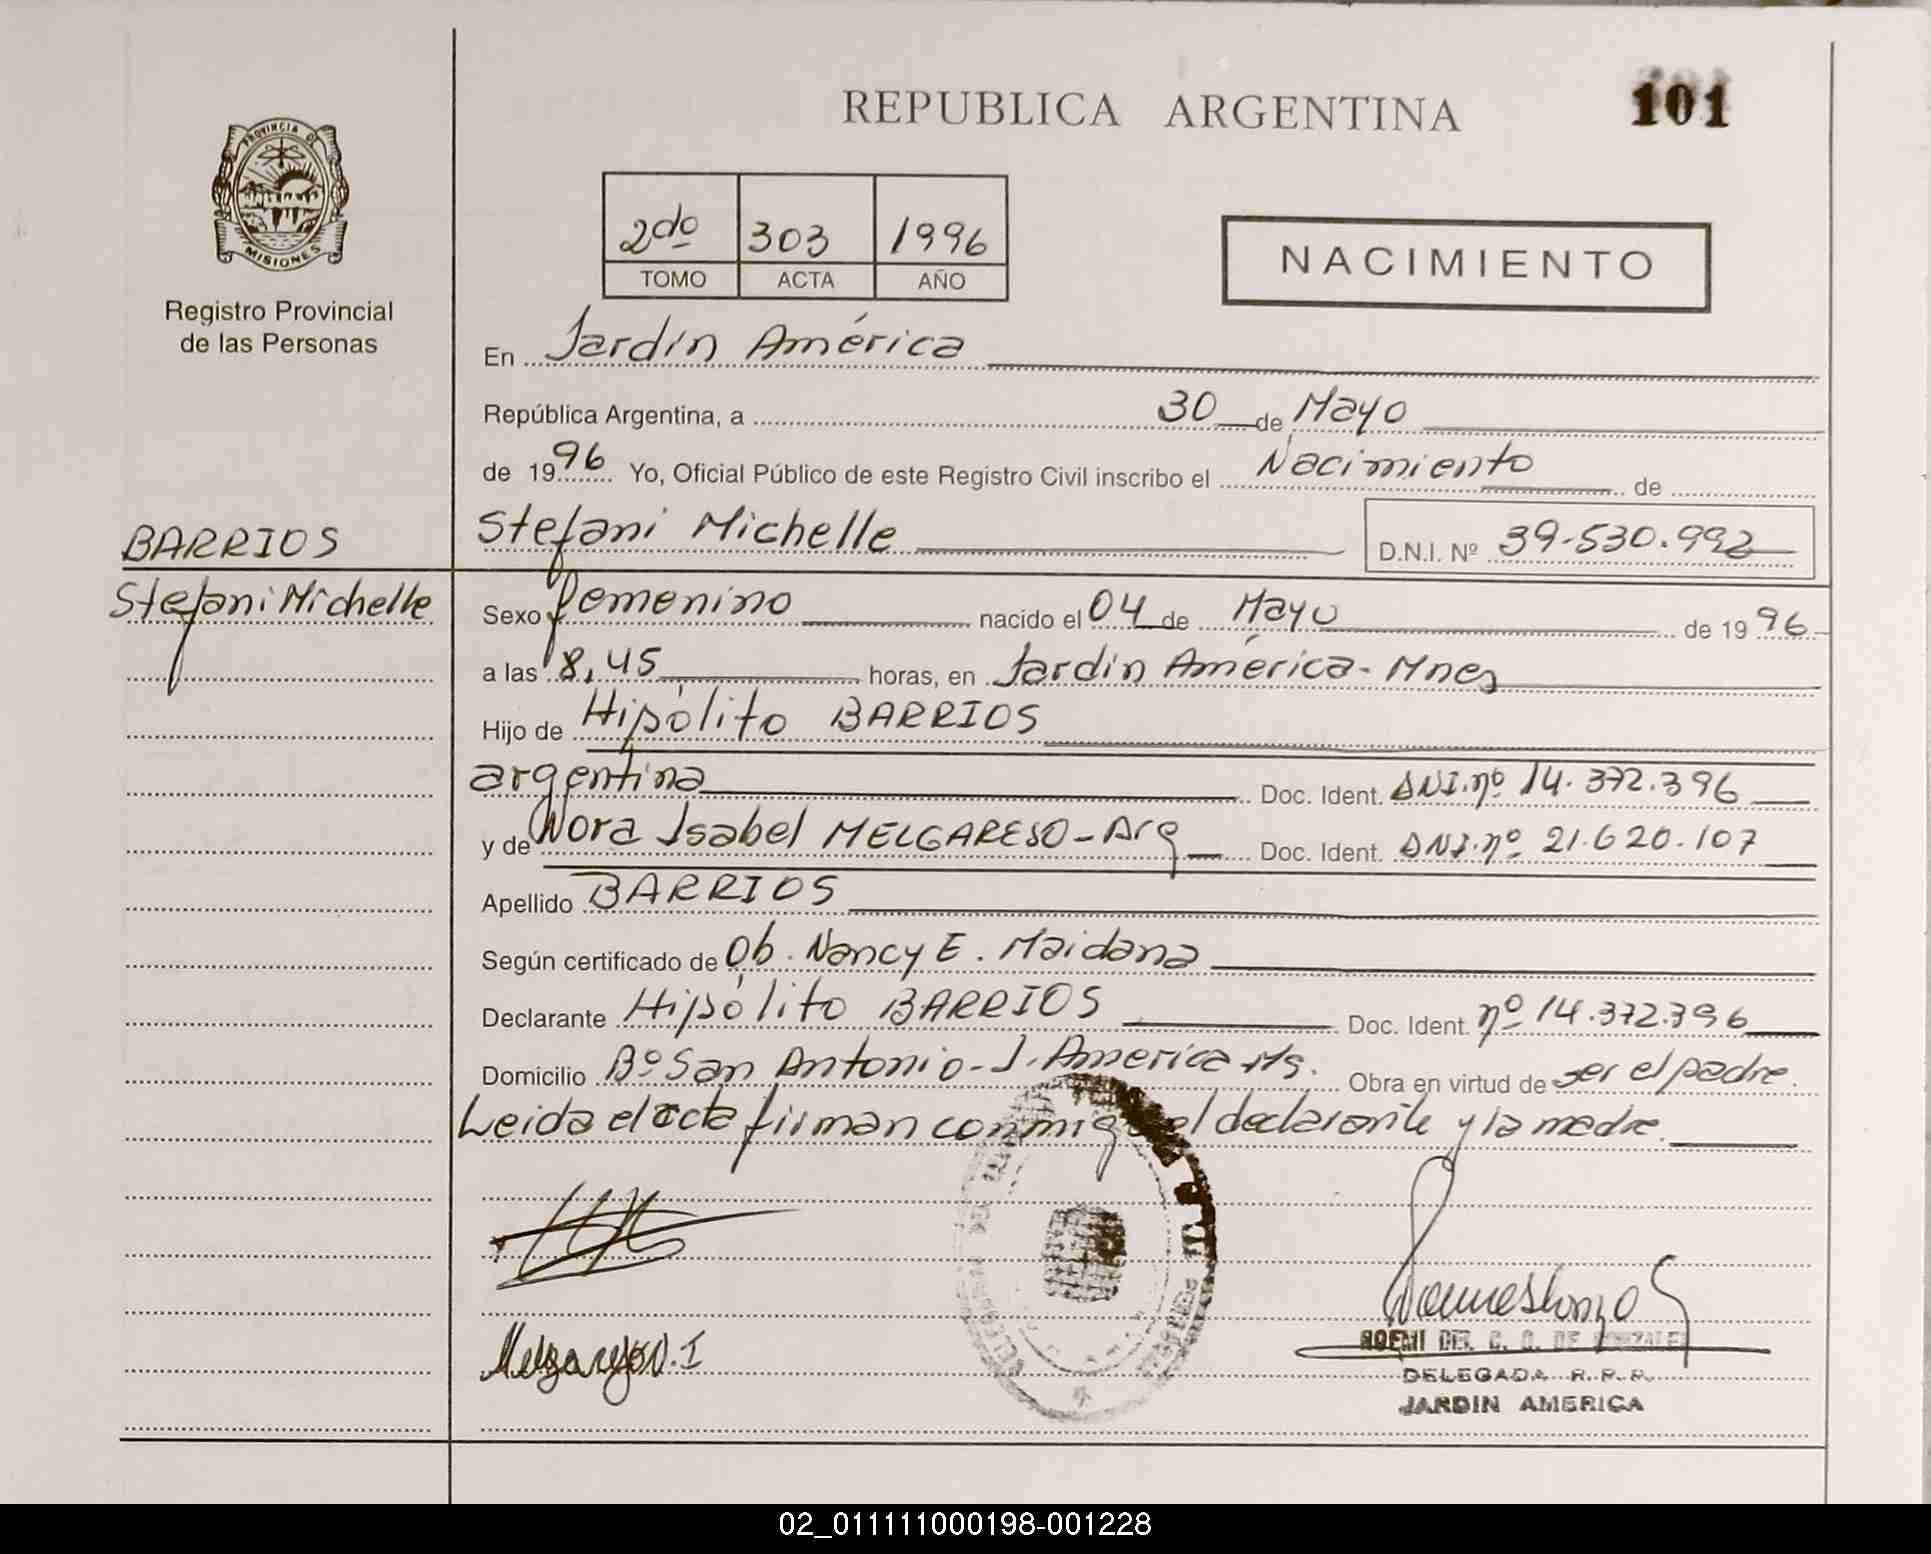 REPUBLICA ARGENTINA
101
PROVINCIA DE
MISIONES
Registro Provincial
de las Personas
2do 303 1996
TOMO ACTA AÑO
NACIMIENTO
En Jardín América
República Argentina, a 30 de Mayo
de 1996 Yo, Oficial Público de este Registro Civil inscribo el Nacimiento de
BARRIOS
Stefani Michelle
Stefani Michelle D.N.I. Nº 39.530.992
Sexo femenino nacido el 04 de Mayo de 1996
a las 8,45 horas, en Jardin América - Mnes
Hijo de Hipólito BARRIOS
argentina Doc. Ident. DNI.nº 14.372.396
y de Nora Isabel MELGAREJO - Arg Doc. Ident. DNI.nº 21.620.107
Apellido BARRIOS
Según certificado de Ob. Nancy E. Maidana
Declarante Hipólito BARRIOS Doc. Ident. nº 14.372.396
Domicilio Bº San Antonio - J. America Ms. Obra en virtud de ser el padre.
Leida el acta firman conmigo el declarante y la madre.
Melgarejo N.I
NOEMI DEL C. O. DE GONZALEZ
DELEGADA R.P.P.
JARDIN AMERICA
02_011111000198-001228